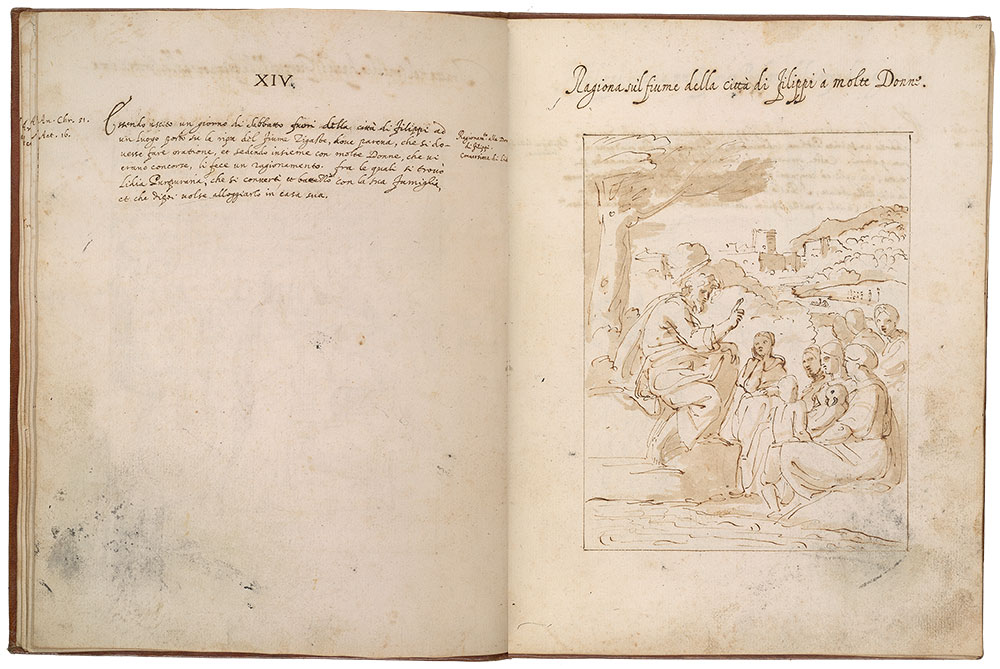 XIV.
An. Chr. 51.
Act. 16.
Essendo uscito un giorno di sabbato fuori della città di Filippi ad
un luogo posto su la ripa del fiume Zigaste, dove pareva, che si do-
vesse fare oratione, et sedendo insieme con molte Donne, che vi
erano concorse, li fece un ragionamento. fra le quali si trovò
Lidia Purpuraria, che si convertì et battezzò con la sua famiglia,
et che volse alloggiarlo in casa sua.
alle Don
di Filippi.
Conversione di Lid
Ragiona sul fiume della città di Filippi à molte Donne.